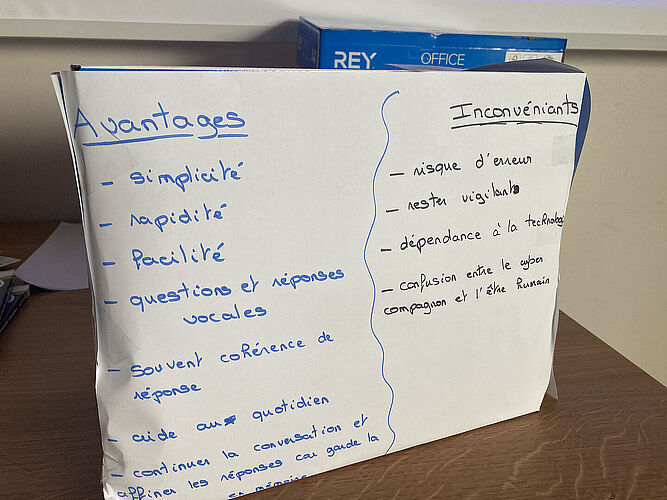 REY
OFFICE
Avantages
- simplicité
- rapidité
- facilité
- questions et réponses
vocales
- souvent cohérence de
réponse
- aide au quotidien
- continuer la conversation et
affiner les réponses car garde la
en mémoire
Inconvéniants
- risque d'erreur
- rester vigilant
- dépendance à la technologi
- confusion entre le cyber
compagnon et l'être humain